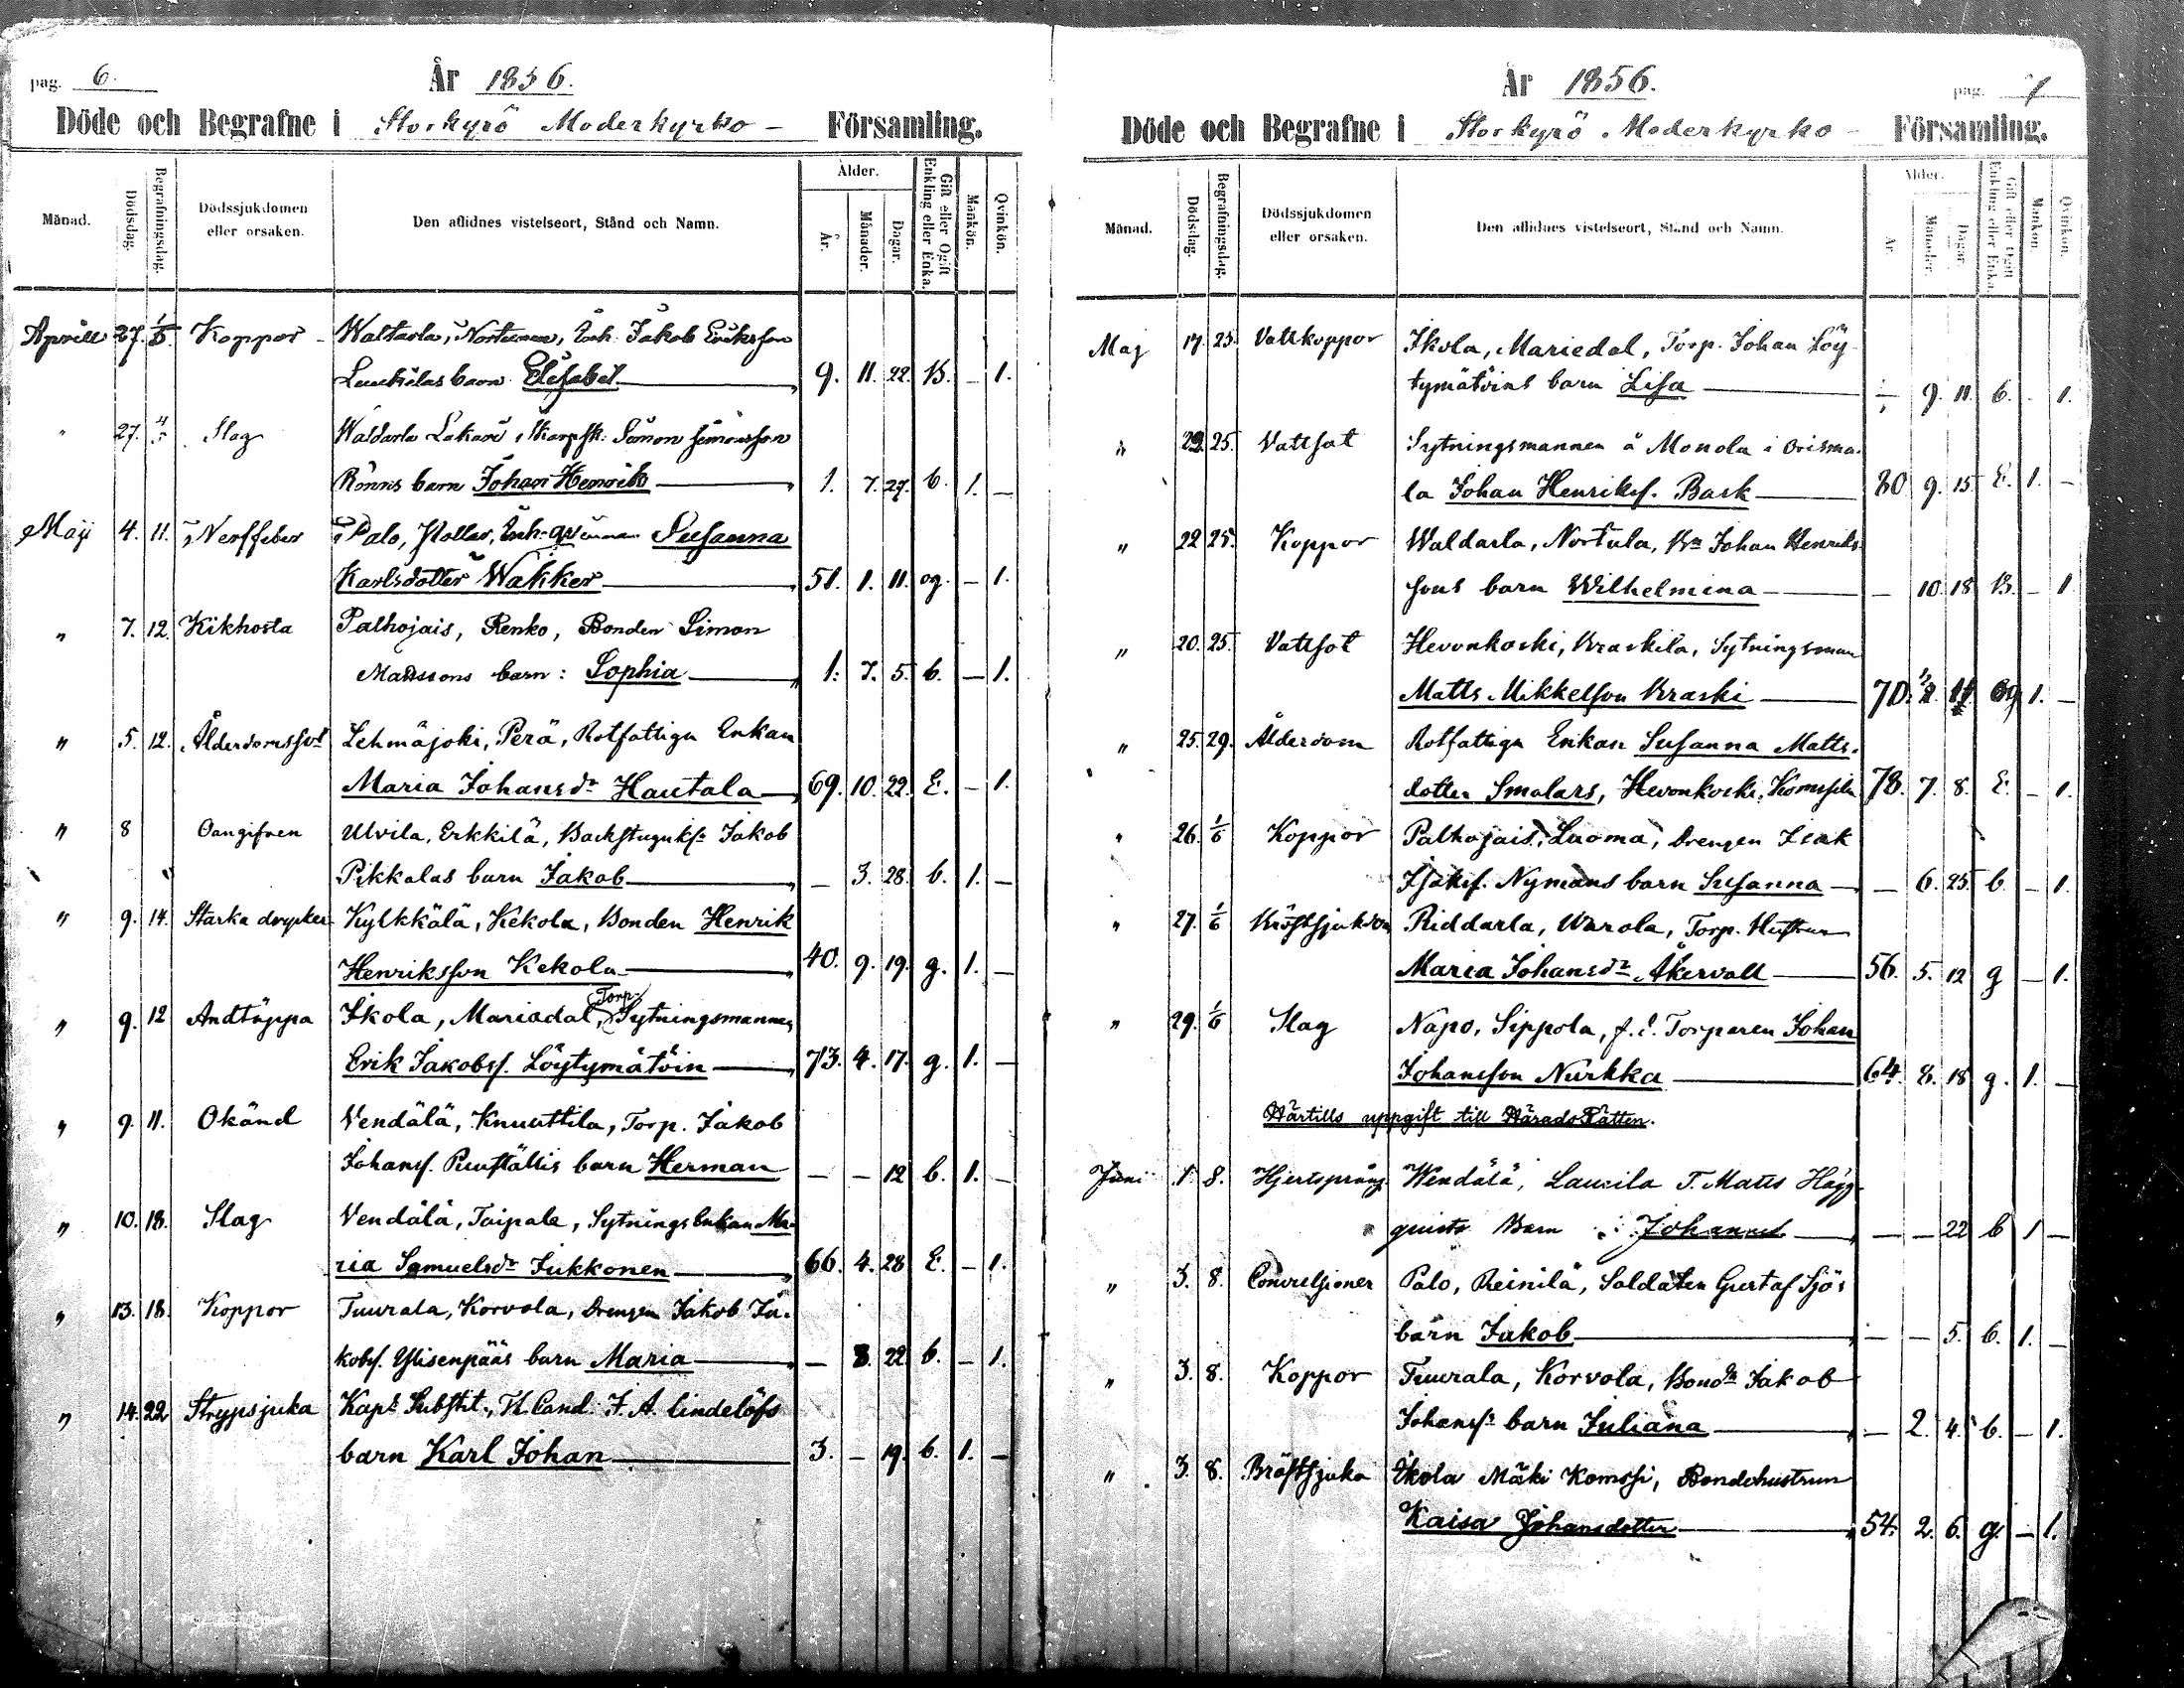 pag. 6.
År 1856.
Döde och Begrafne i Storkyrö Moderkyrko- Församling.
Månad. Dödsdag. Begrafningsdag. Dödssjukdomen eller orsaken. Den aflidnes vistelseort, Stånd och Namn. Ålder. År. Månader. Dagar. Gift eller Ogift Enkling eller Enka. Mankön. Qvinkön.
Aprill 27. 1/5. Koppor - Waltarla, Inh. Jakob Eriksson
barn Elisabet 9. 11. 22. B. - 1.
" 27. 4/5 Slag Waldarla Lakari, Skarpsk. Simon Simonsson
Rönns barn Johan Henrik 1. 7. 27. b. 1. -
Maji 4. 11. Nerffeber Palo, Inh. Susanna
Karlsdotter Wakker 51. 1. 11. og. - 1.
" 7. 12. Kikhosta Palhojais, Renko, Bonden Simon
Matssons barn: Sophia 1. 7. 5. b. - 1.
" 5. 12. Ålderdomssvt Lehmäjoki, Perä, Rotfattiga Enkan
Maria Johansdr Hautala 69. 10. 22. E. - 1.
" 8 Oangifven Ulvila, Erkkilä, Backstuguks. Jakob
Pikkalas barn Jakob - 3. 28. b. 1. -
" 9. 14. Starka drycker Kylkkälä, Kekola, Bonden Henrik
Henriksson Kekola 40. 9. 19. g. 1. -
" 9. 12 Andtäppa Ikola, Mariadal, Torp. Sytningsmannen
Erik Jakobss. Löytymätöin 73. 4. 17. g. 1. -
" 9. 11. Okänd Vendälä, Knuuttila, Torp. Jakob
Johanss. barn Herman - - 12 b. 1. -
" 10. 18. Slag Vendälä, Taipale, Sytnings Enkan Ma-
ria Samuelsdr Jukkonen 66. 4. 28 E. - 1.
" 13. 18. Koppor Tuurala, Korvola, Drengen Jakob Ja-
kobss. Ylisenpääs barn Maria - 8. 22. b. - 1.
" 14. 22 Strypsjuka Kapl. Substit., Cand. J. A. Lindelöfs
barn Karl Johan 3. - 19. b. 1. -
År 1856.
pag. 7
Döde och Begrafne i Storkyrö Moderkyrko- Församling.
Månad. Dödsdag. Begrafningsdag. Dödssjukdomen eller orsaken. Den aflidnes vistelseort, Stånd och Namn. Ålder. År. Månader. Dagar. Gift eller Ogift Enkling eller Enka. Mankön. Qvinkön.
Maj 17. 25. Vattkoppor Ikola, Mariedal, Torp. Johan Löy-
tymätöins barn Lisa - 9. 11. b. - 1.
" 25. Vattsot Sytningsmannen å Monola i Orisma-
la Johan Henrikss. Bask 80. 9. 15. E. 1. -
" 22 25. Koppor Waldarla, Nortula, Bn Johan Henriks-
sons barn Wilhelmina - 10. 18. B. - 1
" 20. 25. Vattsot Hevonkoski, Kraskila, Sytningsman
Matts Mikkelson Kraski 70. og 1. -
" 25. 29. Ålderdom Rotfattiga Enkan Susanna Matts-
dotter Smalars, Hevonkoski, 78. 7. 8. E. - 1.
" 26. 1/6 Koppor Palhojais, Luoma, Drengen Isak
Isakss. Nymans barn Susanna - 6. 25. b. - 1.
" 27. 1/6 Bröstsjukdom Riddarla, Warola, Torp. Hustrun
Maria Johansdr Åkervall 56. 5. 12 g - 1.
" 29. 1/6 Slag Napo, Sippola, f. d. Torparen Johan
Johansson Nurkka 64. 8. 18 g. 1. -
Härtills uppgift till HäradsRätten.
Juni 1. 8. Hjertsprång Wendälä, Laurila T. Matts Hägg-
quists Barn : Johannes - - 22 b 1 -
" 3. 8. Convulsioner Palo, Reinilä, Soldaten Gustaf Sjös
barn Jakob - - 5. b. 1. -
" 3. 8. Koppor Tuurala, Korvola, Bondn Jakob
Johanss. barn Juliana - 2. 4. b. - 1.
" 3. 8. Bröstsjuka Ikola Mäki Komssi, Bondehustrun
Kaisa Johansdotter 54. 2. 6. g. - 1.